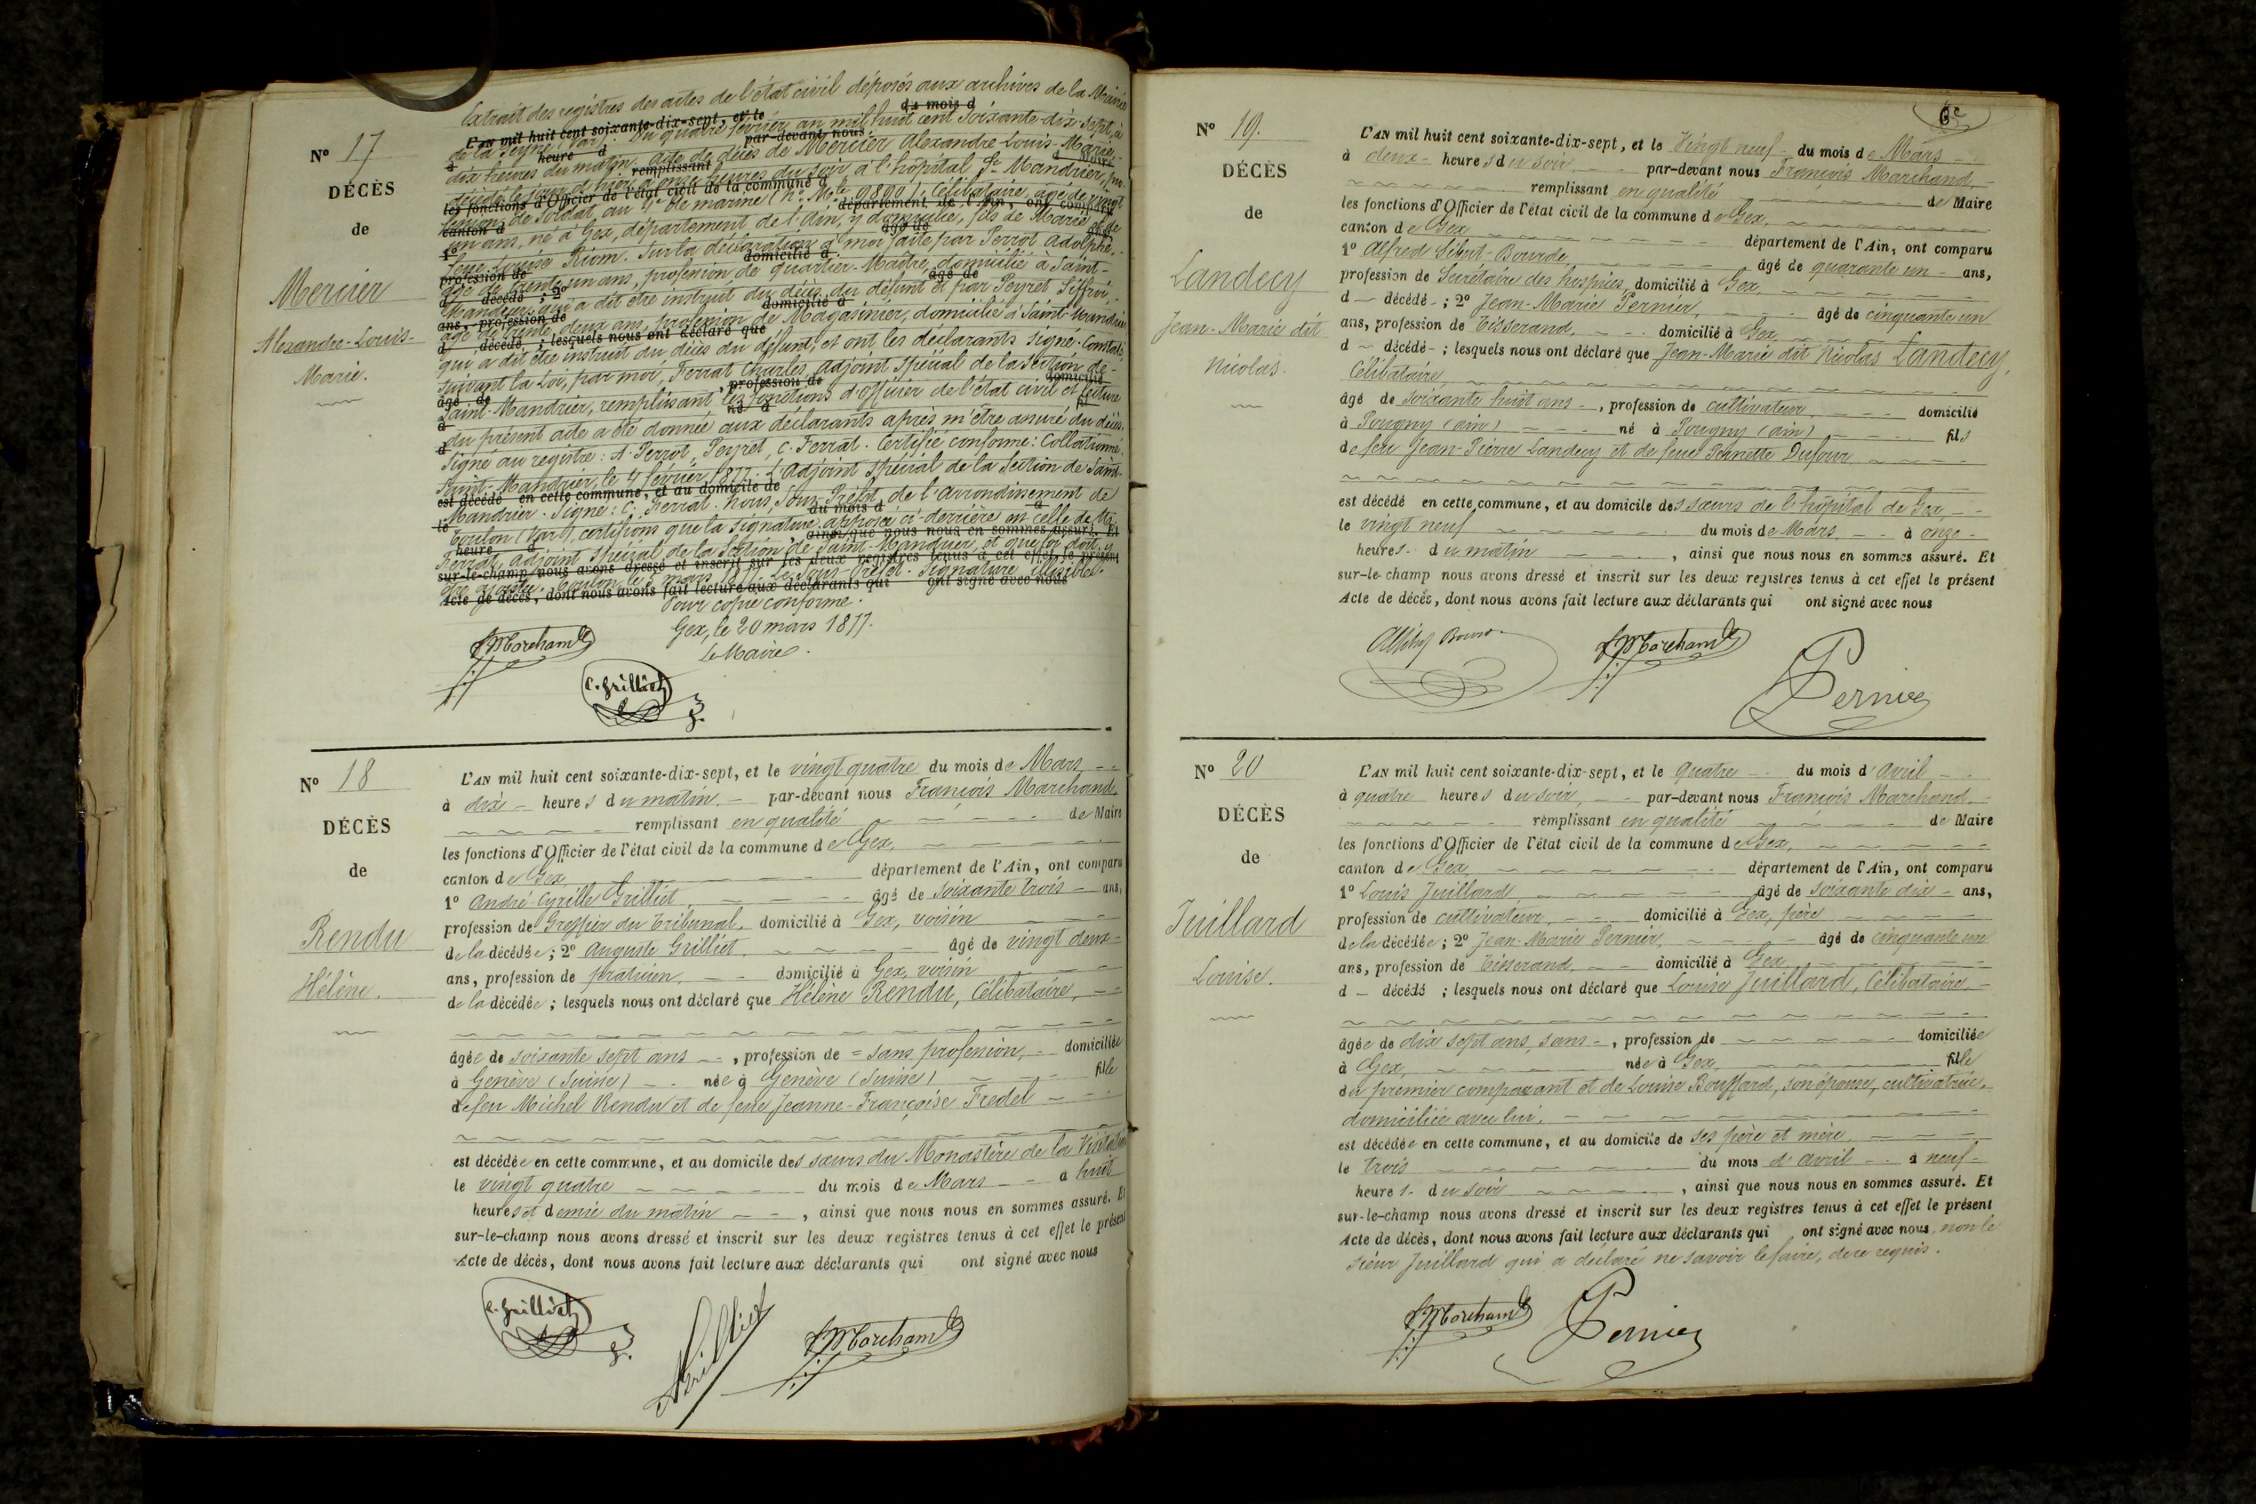 Nº 17
DÉCÈS
de
Mercier
Alexandre-Louis-
Marie.
Extrait des registres des actes de l'état civil déposés aux archives de la Mairie
de la Seyne (Var). Du quatre février an mil huit cent soixante-dix-sept, à
dix heures du matin. acte de décès de Mercier Alexandre-Louis-Marie,
décédé le jour de hier à onze heures du soir à l'hôpital St Mandrier,
de soldat au 4e de marine (Nº Mle 9890), célibataire, âgé de vingt
un ans, né à Gex, département de l'Ain, y domicilié, fils de Marie et de
feue Louise Riom. Sur la déclaration à moi faite par Perrot Adolphe,
âgé de trente un ans, profession de quartier-Maître domicilié à Saint-
Mandrier qui a dit être instruit du décès du défunt et par Peyret
âgé de trente deux ans, profession de Magasinier, domicilié à Saint-Mandrier
qui a dit être instruit du décès du défunt, et ont les déclarants signé. Constaté
suivant la Loi, par moi, Ferrat Charles, adjoint spécial de la section de
Saint-Mandrier, remplissant les fonctions d'officier de l'état civil et lecture
du présent acte a été donnée aux déclarants après m'être assuré du décès.
Signé au registre : A. Perrot, Peyret, C. Ferrat. Certifié conforme : Collationné.
Saint-Mandrier, le 4 février 1877. L'Adjoint spécial de la Section de Saint-
Mandrier. Signé : C. Ferrat. Nous, Sous-Préfet de l'arrondissement de
Toulon (Var), certifions que la signature apposée ci-derrière est celle de Mr
Ferrat, adjoint spécial de la Section de Saint-Mandrier et que foi doit y
être ajoutée. Toulon, le 5 mars 1877. Le Sous-Préfet. Signature illisible.
Pour copie conforme.
Gex, le 20 mars 1877.
Le Maire.
F Marchand
C. Grilliet
Nº 18
DÉCÈS
de
Rendu
Hélène.
L'AN mil huit cent soixante-dix-sept, et le vingt quatre du mois de Mars
à dix heures du matin par-devant nous François Marchand
remplissant en qualité de Maire
les fonctions d'Officier de l'état civil de la commune de Gex,
canton de Gex département de l'Ain, ont comparu
1º André-Cyrille Grilliet, âgé de soixante trois ans,
profession de Greffier du Tribunal, domicilié à Gex, voisin
de la décédée ; 2º Auguste Grilliet, âgé de vingt deux
ans, profession de praticien, domicilié à Gex, voisin
de la décédée ; lesquels nous ont déclaré que Hélène Rendu, Célibataire,
âgée de soixante sept ans, profession de = sans profession, domiciliée
à Genève (Suisse) née à Genève (Suisse) fille
de feu Michel Rendu et de feue Jeanne-Françoise Fredel
est décédée en cette commune, et au domicile des sœurs du Monastère de la Visitation
le vingt quatre du mois de Mars à huit
heures et demie du matin, ainsi que nous nous en sommes assuré. Et
sur-le-champ nous avons dressé et inscrit sur les deux registres tenus à cet effet le présent
Acte de décès, dont nous avons fait lecture aux déclarants qui ont signé avec nous
C. Grilliet
Grilliet
F Marchand
6e
Nº 19.
DÉCÈS
de
Landecy
Jean-Marie dit
Nicolas.
L'AN mil huit cent soixante-dix-sept, et le Vingt neuf du mois de Mars
à deux heures du soir par-devant nous François Marchand,
remplissant en qualité de Maire
les fonctions d'Officier de l'état civil de la commune de Gex,
canton de Gex département de l'Ain, ont comparu
1º Alfred Sibut-Bourde, âgé de quarante un ans,
profession de Secrétaire des hospices, domicilié à Gex,
d décédé ; 2º Jean-Marie Pernier, âgé de cinquante un
ans, profession de Tisserand, domicilié à Gex
d décédé ; lesquels nous ont déclaré que Jean-Marie dit Nicolas Landecy,
Célibataire,
âgé de soixante huit ans, profession de cultivateur, domicilié
à Pougny (Ain) né à Pougny (Ain) fils
de feu Jean-Pierre Landecy et de feue Pernette Dufour
est décédé en cette commune, et au domicile des sœurs de l'hôpital de Gex
le vingt neuf du mois de Mars à onze
heures du matin, ainsi que nous nous en sommes assuré. Et
sur-le-champ nous avons dressé et inscrit sur les deux registres tenus à cet effet le présent
Acte de décès, dont nous avons fait lecture aux déclarants qui ont signé avec nous
F Marchand
Pernier
Nº 20
DÉCÈS
de
Juillard
Louise.
L'AN mil huit cent soixante-dix-sept, et le quatre du mois d'avril
à quatre heures du soir, par-devant nous François Marchand
remplissant en qualité de Maire
les fonctions d'Officier de l'état civil de la commune de Gex,
canton de Gex département de l'Ain, ont comparu
1º Louis Juillard âgé de soixante dix ans,
profession de cultivateur, domicilié à Gex, père
de la décédée ; 2º Jean-Marie Pernier, âgé de cinquante un
ans, profession de Tisserand, domicilié à Gex
d décédé ; lesquels nous ont déclaré que Louise Juillard, Célibataire,
âgée de dix sept ans, sans, profession de domiciliée
à Gex, née à Gex, fille
du premier comparant et de Louise Bouffard, son épouse, cultivatrice,
domiciliée avec lui,
est décédée en cette commune, et au domicile de ses père et mère
le trois du mois d'avril à neuf
heures du soir, ainsi que nous nous en sommes assuré. Et
sur-le-champ nous avons dressé et inscrit sur les deux registres tenus à cet effet le présent
Acte de décès, dont nous avons fait lecture aux déclarants qui ont signé avec nous, non le
sieur Juillard qui a déclaré ne savoir le faire, de ce requis.
F Marchand
Pernier